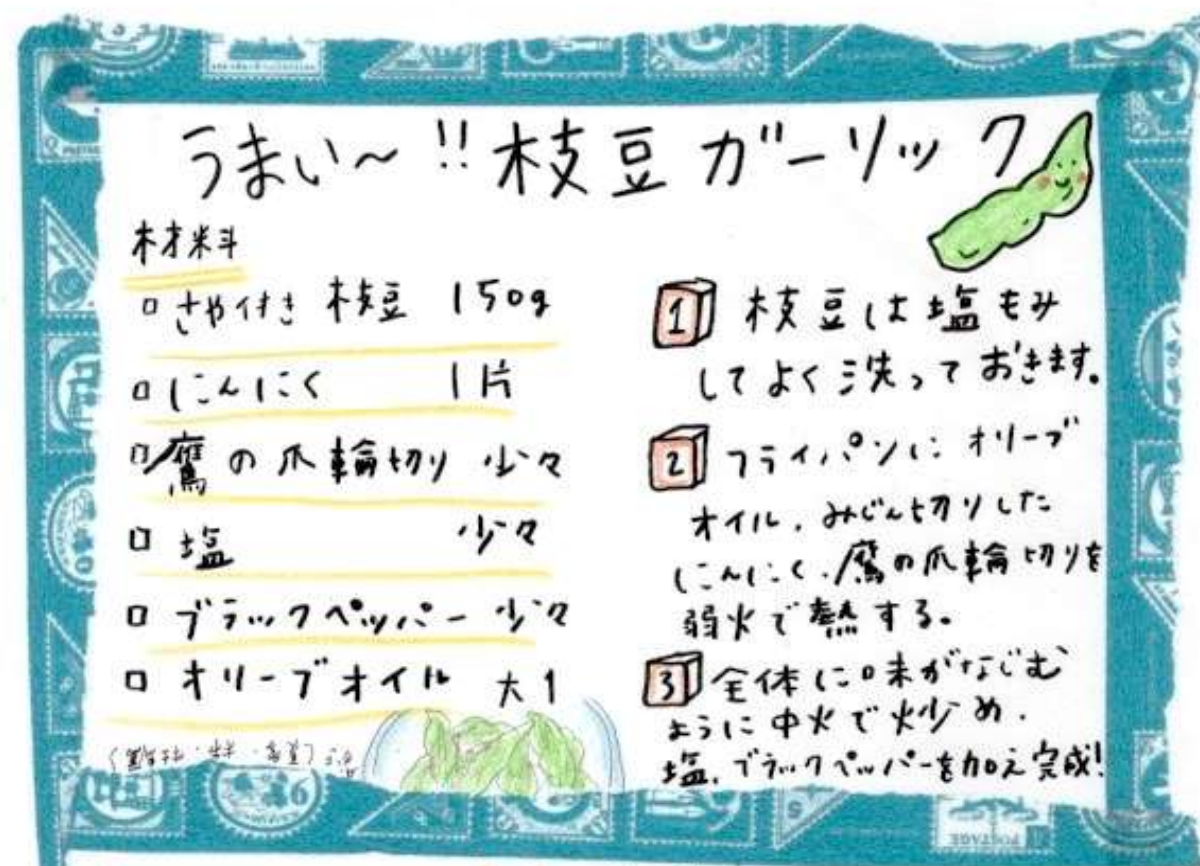 うまい～!!枝豆ガーリック
材料
さや付き 枝豆 150g
にんにく 1片
鷹の爪輪切り 少々
塩 少々
ブラックペッパー 少々
オリーブオイル 大1
1 枝豆は塩もみ
してよく洗っておきます。
2 フライパンにオリーブ
オイル、みじん切りした
にんにく、鷹の爪輪切りを
弱火で熱する。
3 全体に味がなじむ
ように中火で炒め、
塩、ブラックペッパーを加え完成!
POSTAGE